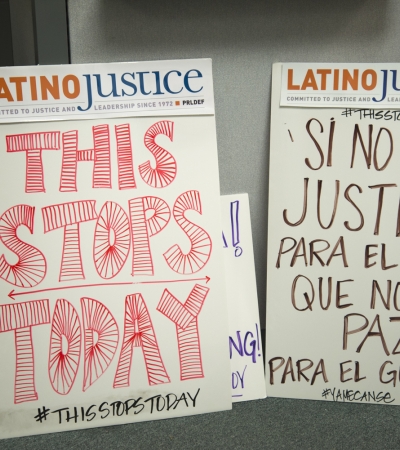 ATINOJUSTICE
TTED TO JUSTICE AND LEADERSHIP SINCE 1972 PRLDEF
THIS
STOPS
TODAY
#THISSTOPSTODAY
!
NG!
OY
LATINOJU
COMMITTED TO JUSTICE AND
#THISSTO
SÍ NO
JUSTI
PARA EL
QUE NO
PAZ
PARA EL G
#YAMECANSE